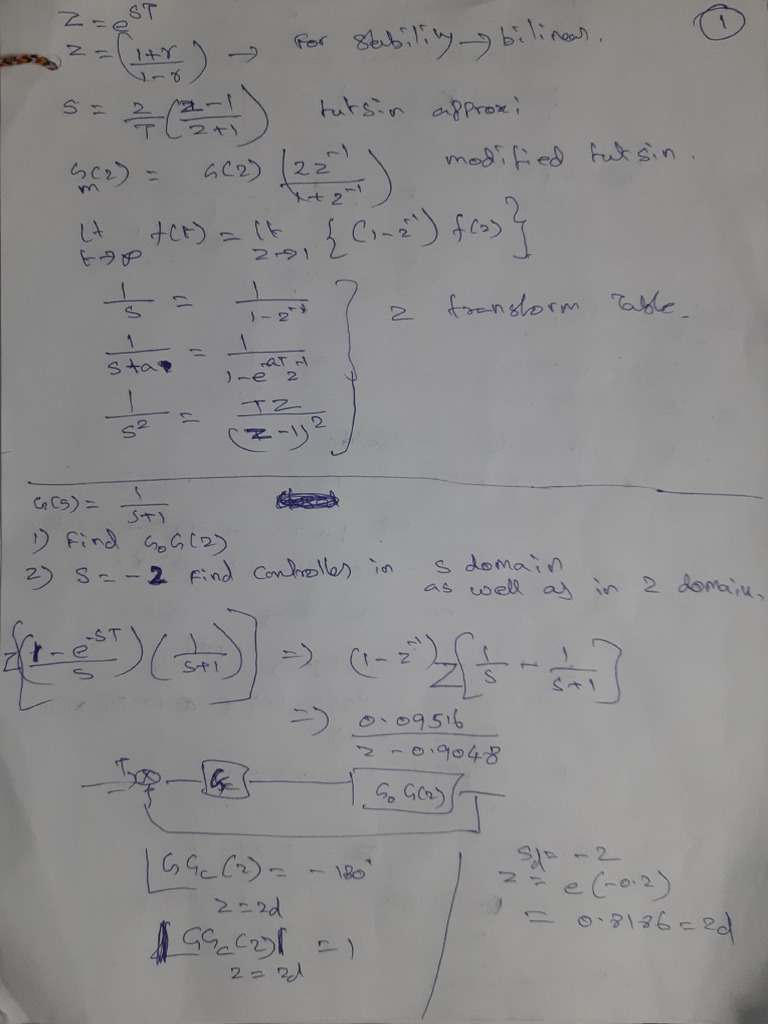 1
z = e^{sT}
z = (1+r / 1-r) → For stability → bilinear.
s = 2/T (z-1 / z+1) tutsin approx:
G_m(z) = G(z) (2z^{-1} / 1+z^{-1}) modified tutsin.
lt t→∞ f(t) = lt z→1 { (1-z^{-1}) f(z) }
1/s = 1 / 1-z^{-1}
1/s+a = 1 / 1-e^{-aT} z^{-1} z transform Table.
1/s^2 = Tz / (z-1)^2
G(s) = 1/s+1
1) Find G_0G(z)
2) S = -2 Find controller in s domain
as well as in z domain.
z[(1-e^{-sT} / s) (1/s+1)] ⇒ (1-z^{-1}) z[1/s - 1/s+1]
⇒ 0.09516 / z-0.9048
G_c G_0G(z)
∠GG_c(z) = -180°
z=z_d
|GG_c(z)| = 1
z=z_d
S_d = -2
z = e(-0.2)
= 0.8186 = z_d